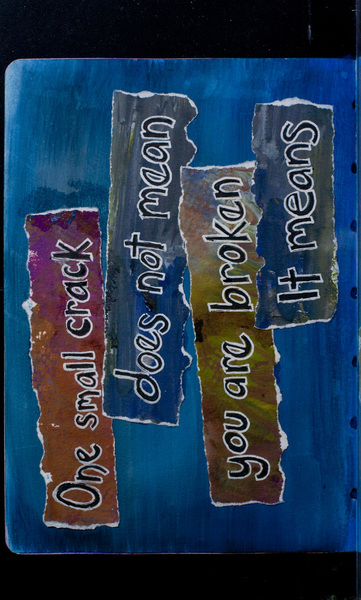 One small crack
does not mean
you are broken
It means